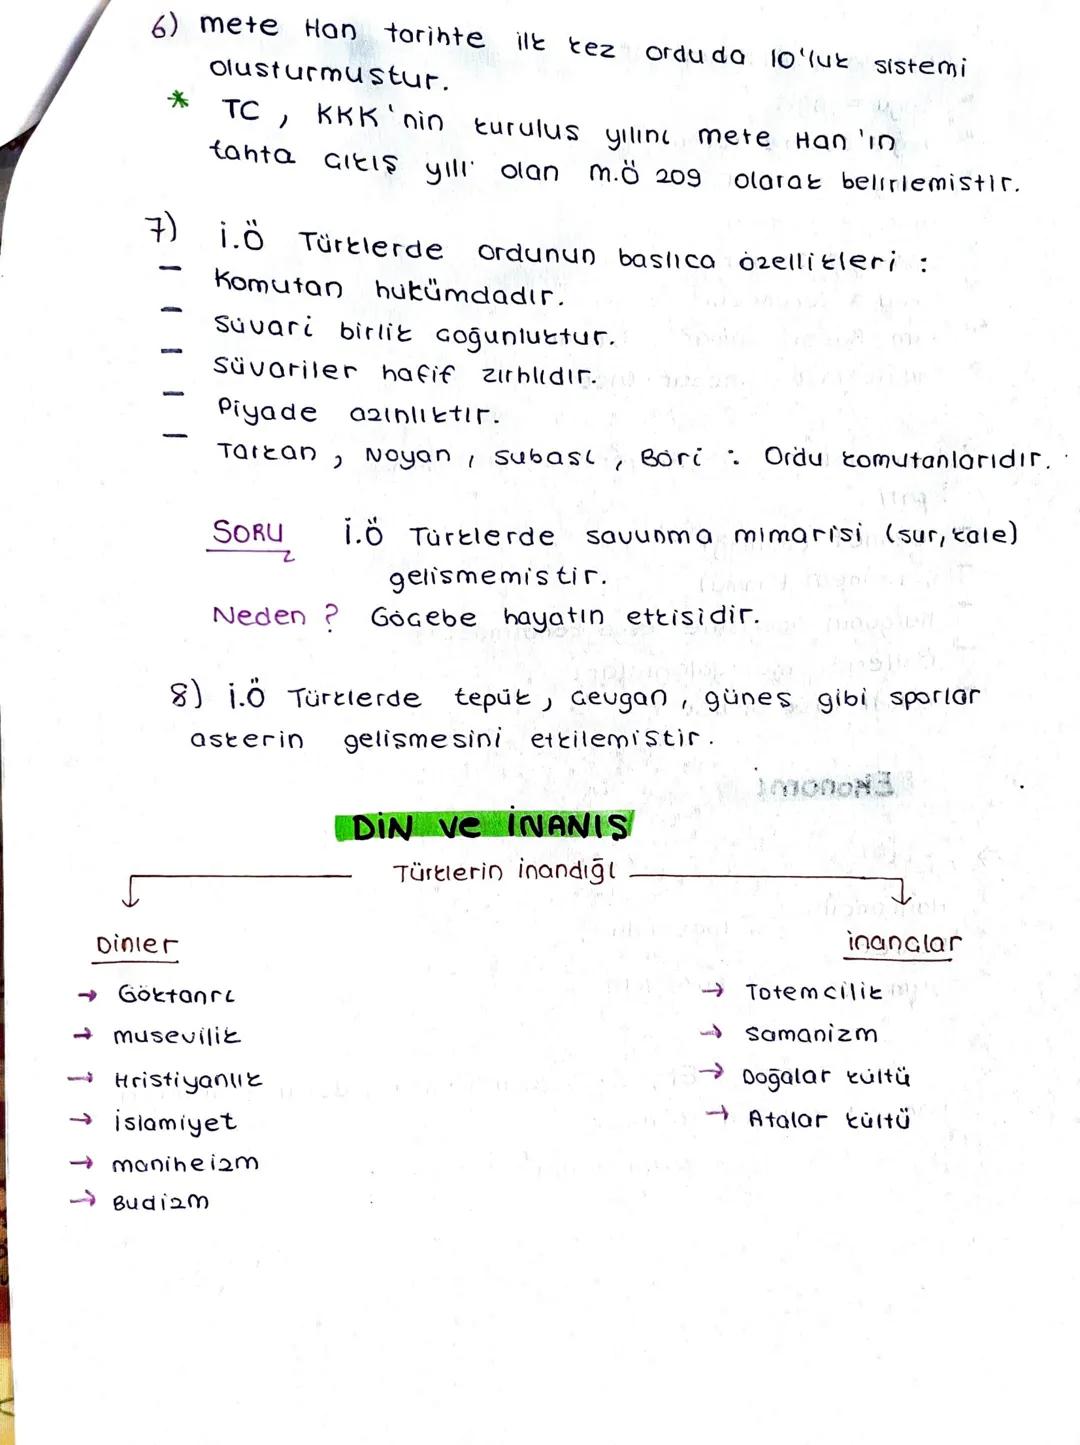 6) mete Han tarihte ilk kez orduda 10'luk sistemi
olusturmustur.
* TC, KKK'nin kurulus yılını mete Han'ın
tahta çıkış yılı olan m.Ö 209 olarak belirlemistir.
7) İ.Ö Türklerde ordunun baslıca özellikleri :
- Komutan hukümdadır.
- Süvari birlik çoğunluktur.
- Süvariler hafif zırhlıdır.
- Piyade azınlıktır.
- Tarkan, Noyan, subası, Böri : Ordu komutanlarıdır.
SORU İ.Ö Türklerde savunma mimarisi (sur, kale)
gelismemistir.
Neden? Göçebe hayatın etkisidir.
8) İ.Ö Türklerde tepük, çevgan, güneş gibi sporlar
askerin gelişmesini etkilemiştir.
DİN ve İNANIŞ
Türklerin inandığı
Dinler
inançlar
→ Göktanrı
→ Totemcilik
→ musevilik
→ Samanizm
→ Hristiyanlık
→ Doğalar kültü
→ İslamiyet
→ Atalar kültü
→ maniheizm
→ Budizm